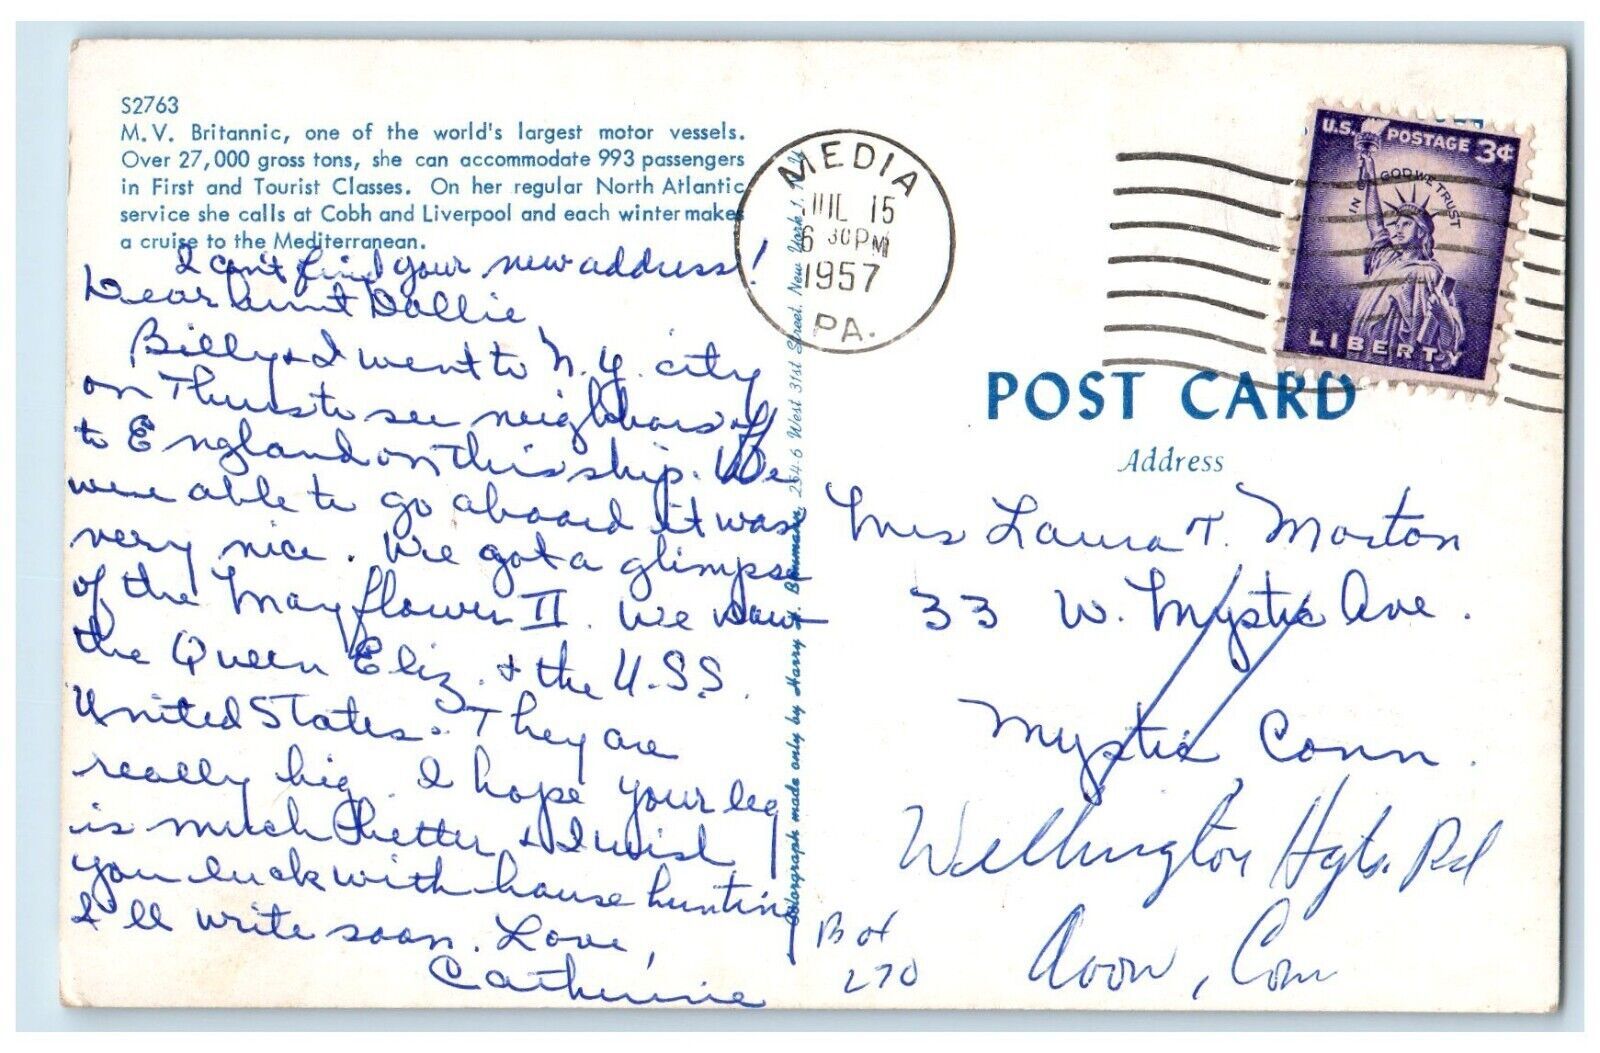 S2763
M.V. Britannic, one of the world's largest motor vessels.
Over 27,000 gross tons, she can accommodate 993 passengers
in First and Tourist Classes. On her regular North Atlantic
service she calls at Cobh and Liverpool and each winter makes
a cruise to the Mediterranean.
I can't find your new address!
Dear Aunt Dollie,
Billy & I went to N.Y. city
on Thurs to see neighbors off
to England on this ship. We
were able to go aboard it was
very nice. We got a glimpse
of the Mayflower II. We saw
the Queen Eliz. & the U.S.S.
United States. They are
really big. I hope your leg
is much better & I wish
you luck with house hunting
I'll write soon. Love,
Catherine
Colorgraph made only by Harry H. Baumann, 254-6 West 31st Street, New York 1, N.Y.
MEDIA
JUL 15
6 30 PM
1957
PA.
U.S. POSTAGE 3¢
IN GOD WE TRUST
LIBERTY
POST CARD
Address
Mrs Laura T. Morton
33 W. Mystic Ave.
Mystic Conn.
Wellington Hgts. Rd
Box 270
Avon, Con